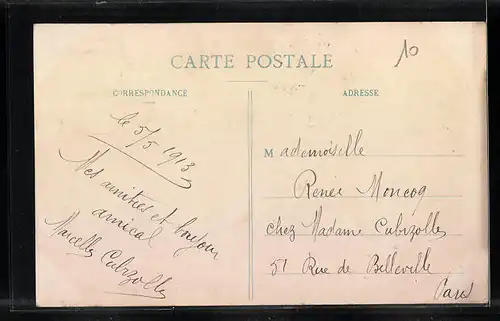 CARTE POSTALE
10
CORRESPONDANCE
ADRESSE
le 5/5 1913
Mes amitiés et bonjour
amical
Marcelle Cubizolles
Mademoiselle
Renée Moncoq
chez Madame Cubizolles
51 Rue de Belleville
Paris